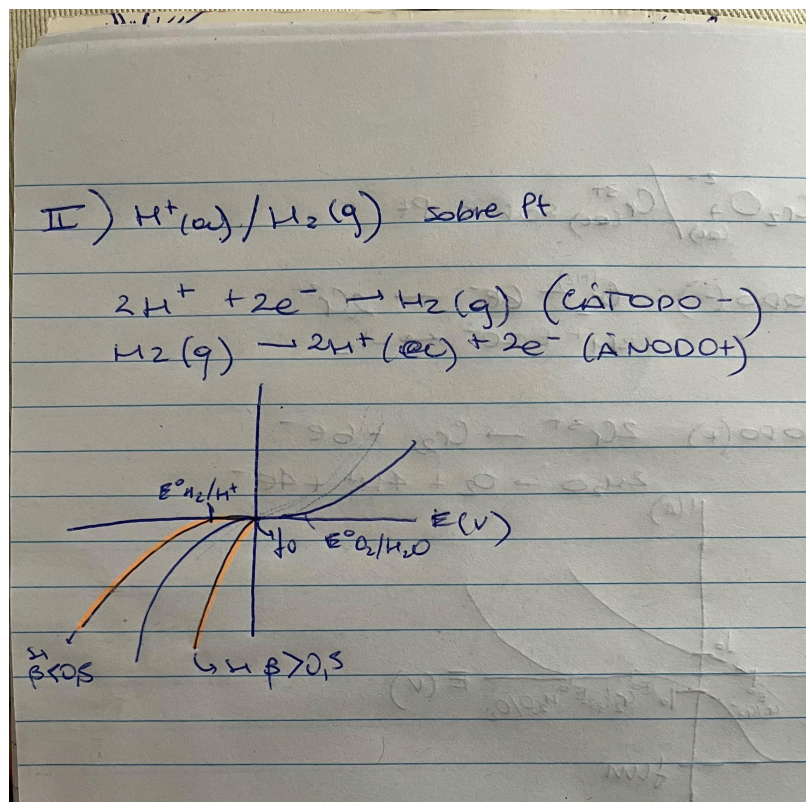 II) H⁺(ac)/H₂(g) sobre Pt
2H⁺ + 2e⁻ → H₂(g) (CÁTODO -)
H₂(g) → 2H⁺(ac) + 2e⁻ (ÁNODO+)
E°H₂/H⁺
E(V)
E°O₂/H₂O
si
β<0,5
↳ si β>0,5